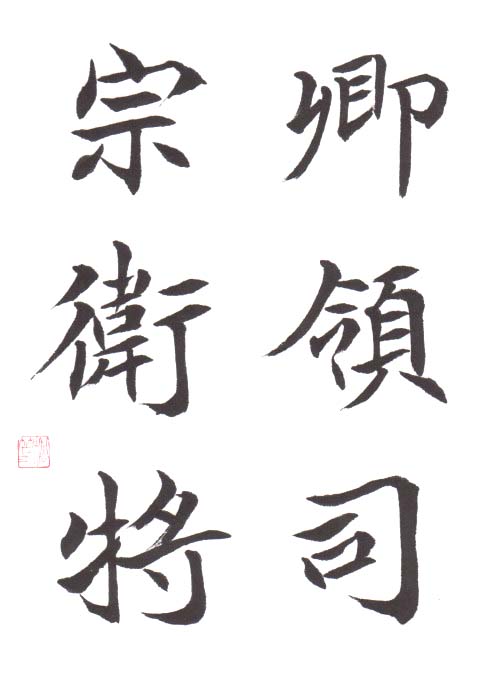 卿領司
宗衛將